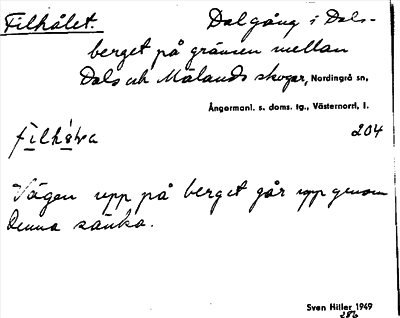 Filhålet. Dalgång i Dals-
berget på gränsen mellan
Dals och Mälands skogar, Nordingrå sn,
Ångermanl. s. doms. tg., Västernorrl. l.
204
Vägen upp på berget går upp genom
denna sänka.
Sven Hitler 1949
286